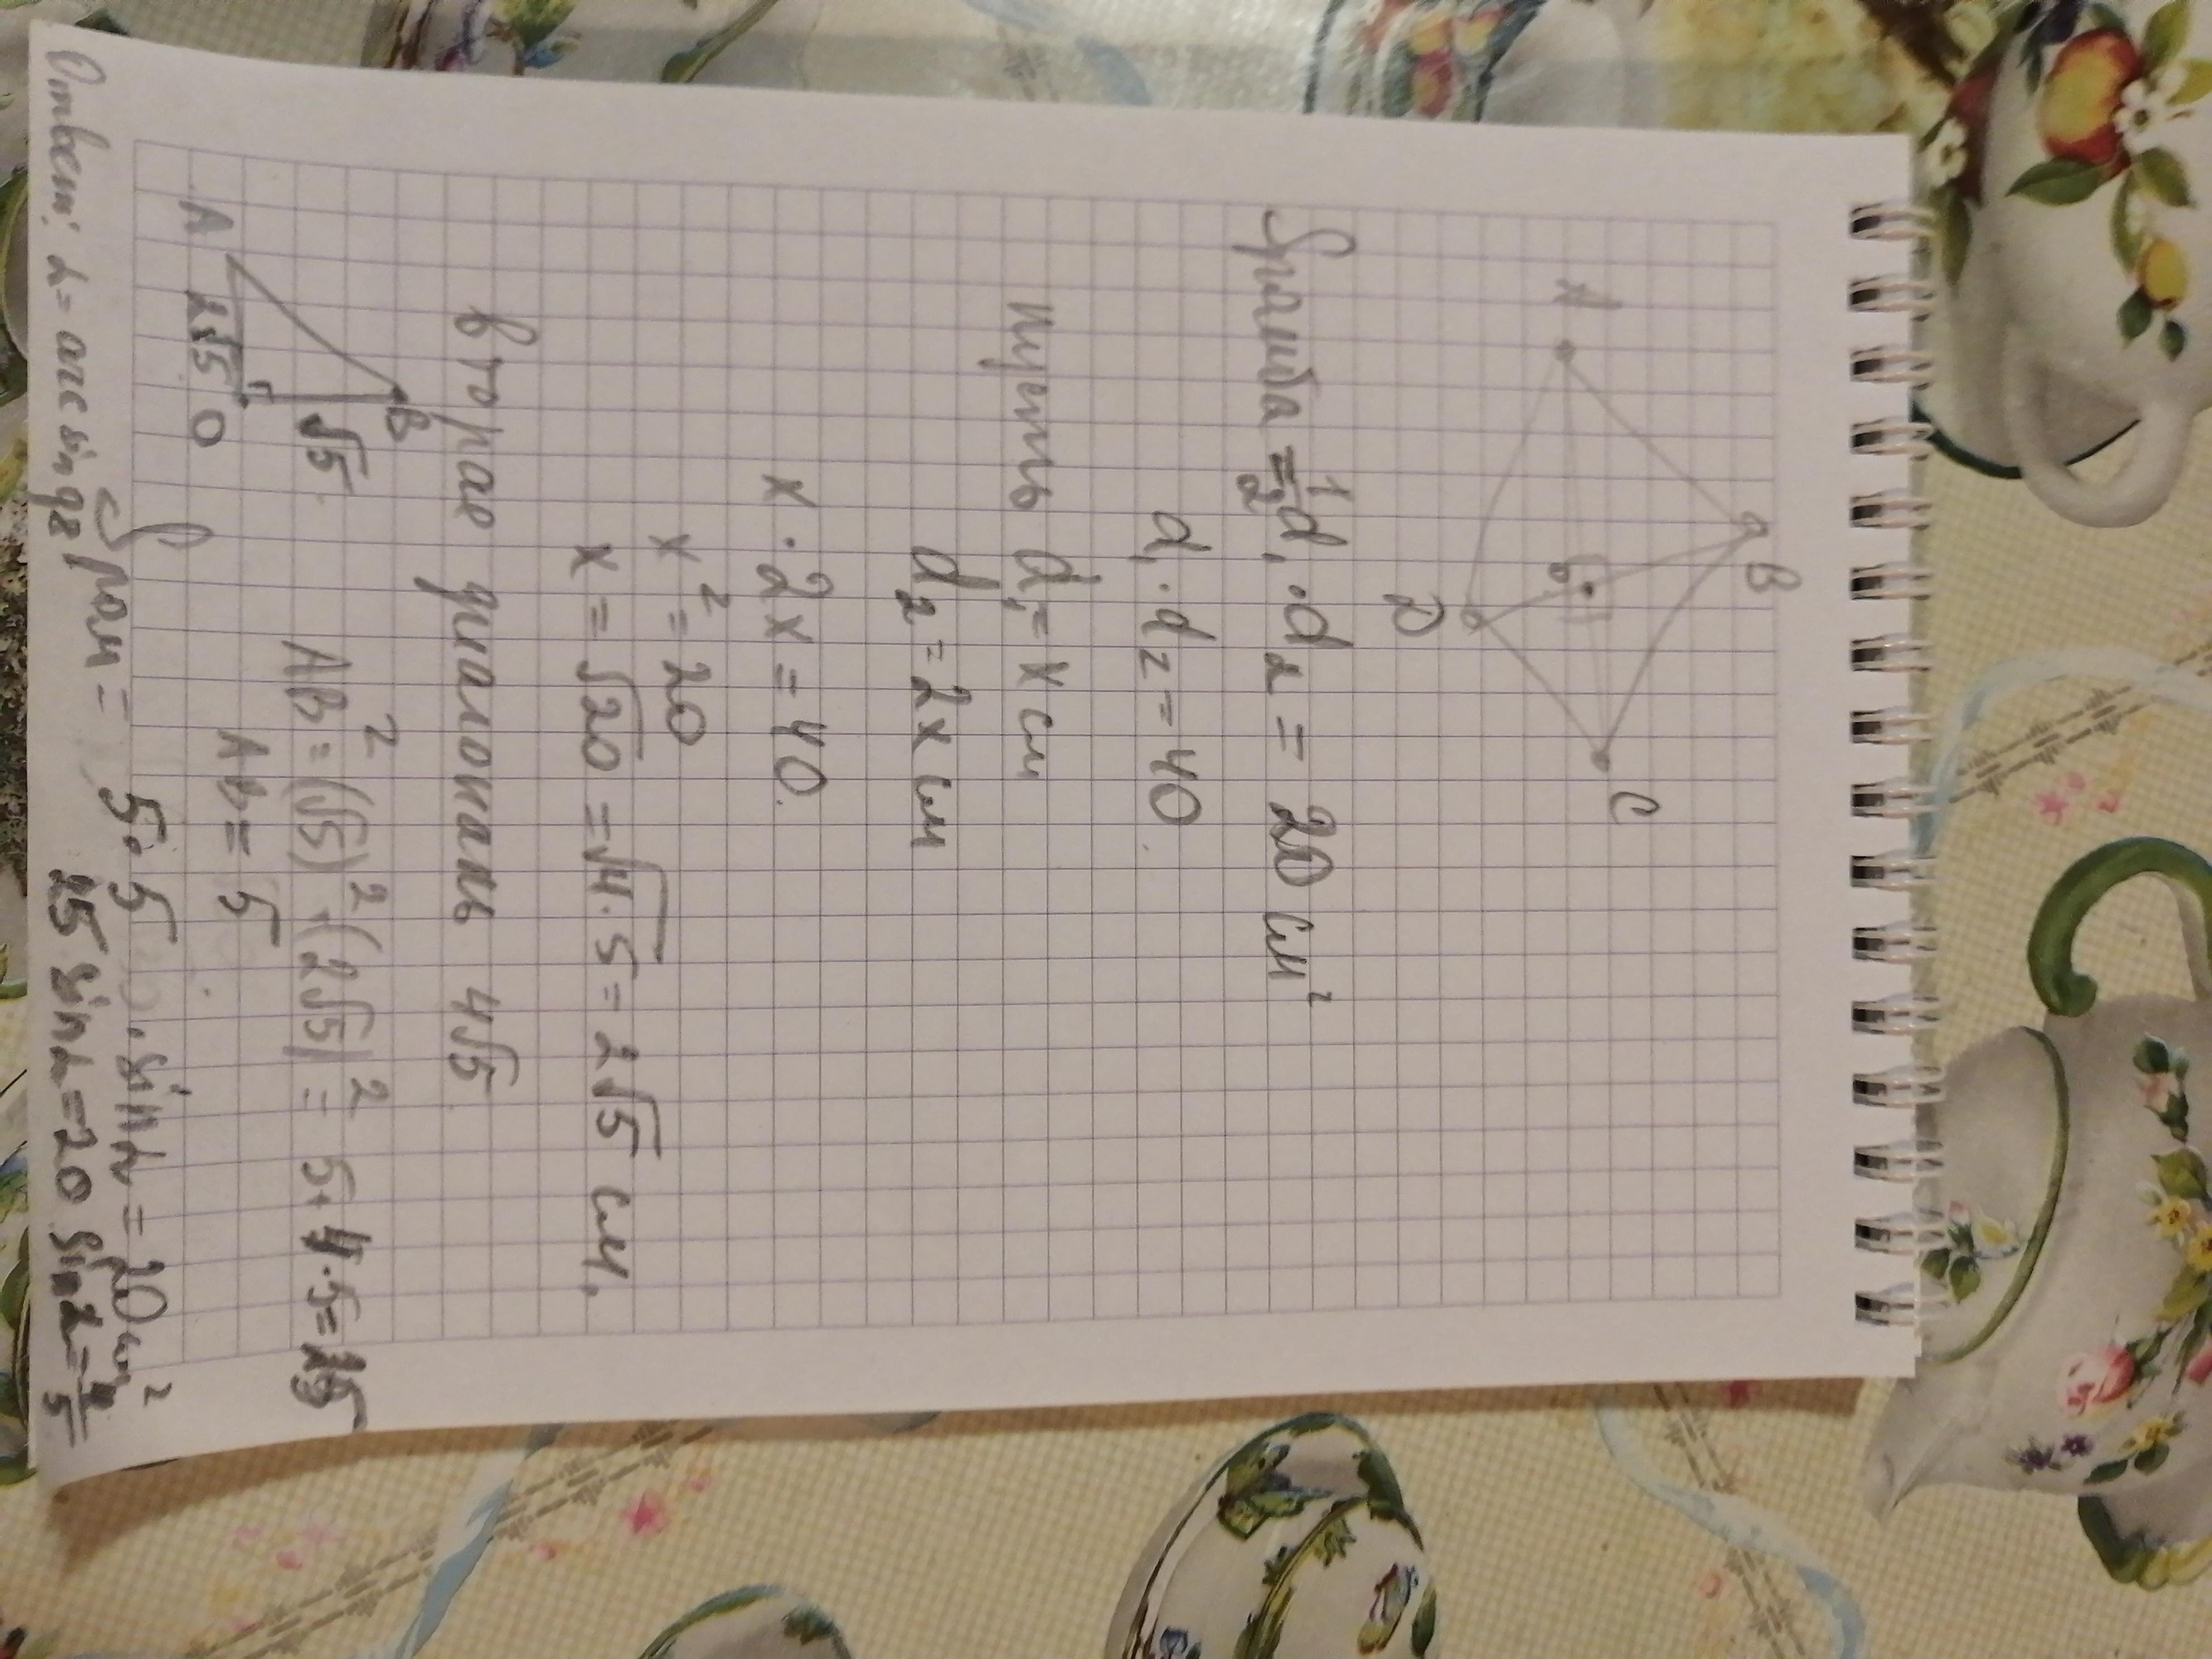 B
A
C
O
D
Sромба = 1/2 d₁ · d₂ = 20 см²
d₁ · d₂ = 40.
пусть d₁ = x см
d₂ = 2x см
x · 2x = 40.
x² = 20
x = √20 = √4·5 = 2√5 см.
вторая диагональ 4√5
B
√5
A
2√5
O
AB² = (√5)² + (2√5)² = 5 + 4·5 = 25
AB = 5
Sром = 5·5 · sin α = 20 см²
25 sin α = 20 sin α = 4/5
Ответ: α = arcsin 0,8